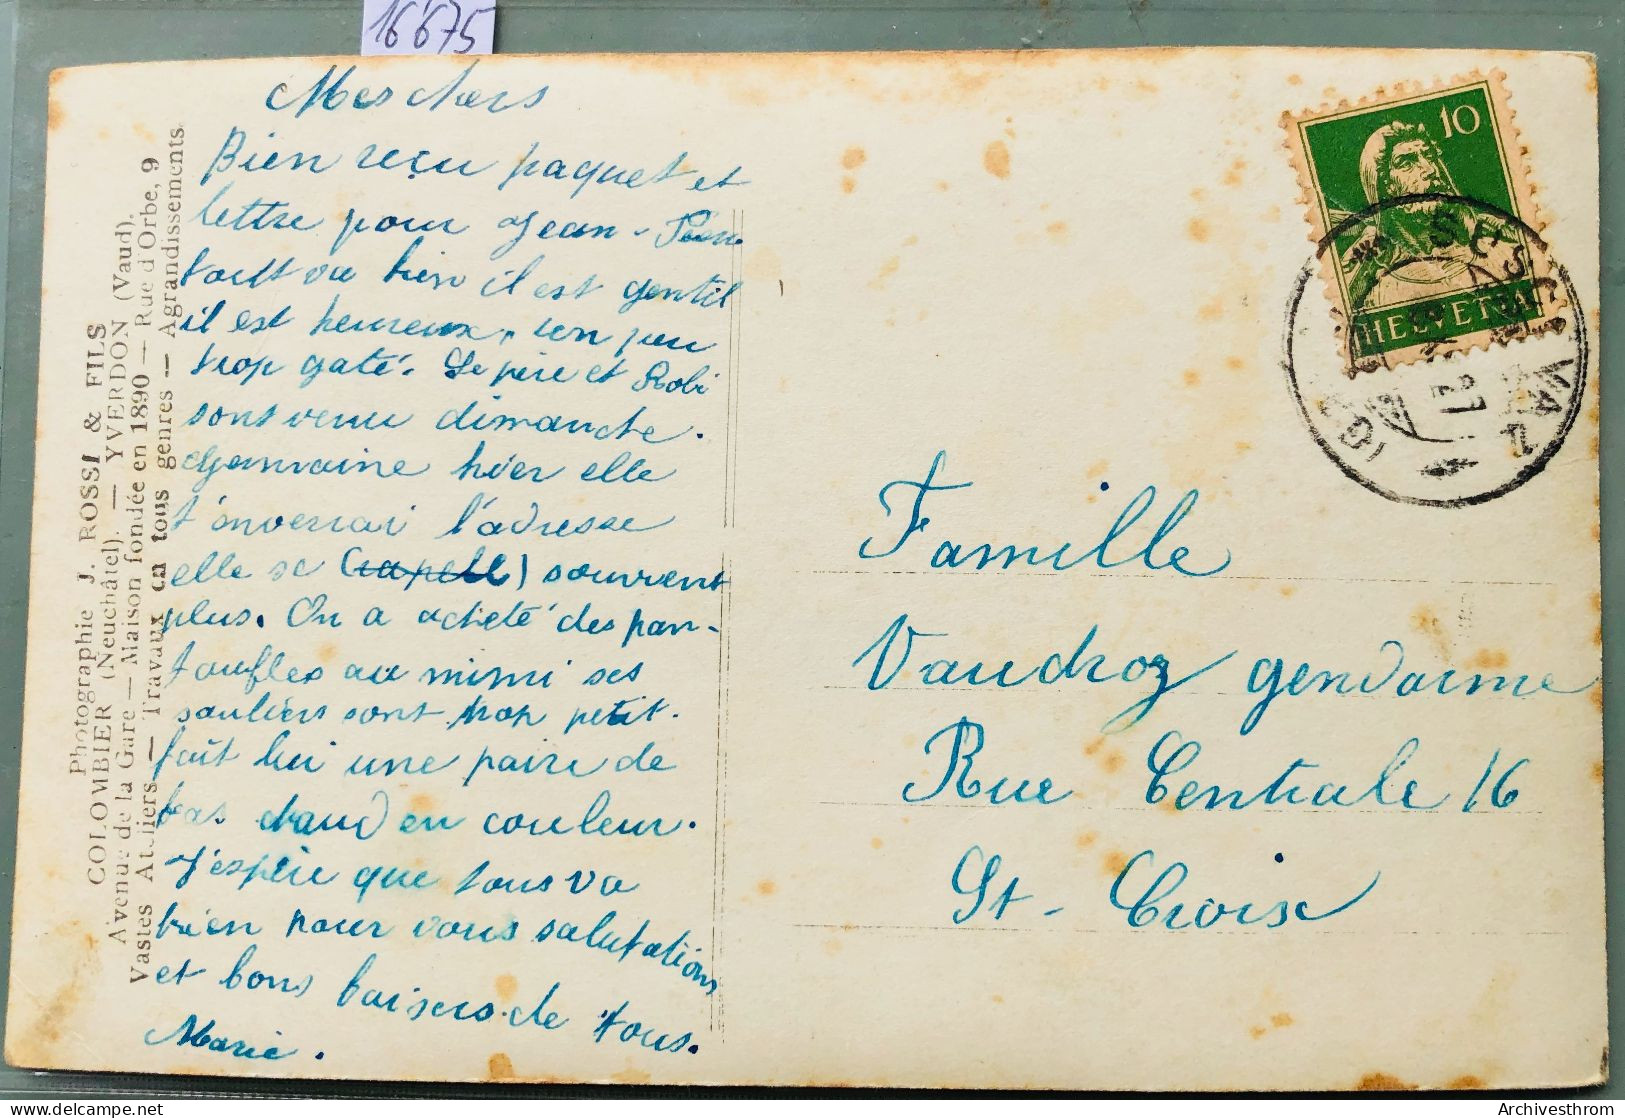 16675
Mes chers
Bien reçu paquet et
lettre pour Jean-
tout va bien il est gentil
il est heureux, un peu
trop gaté. Le père et Robi
sont venu dimanche.
Germaine hier elle
t'enverrai l'adresse
elle se (rapelle) souvient
plus. On a acheté des pan-
toufles au mimi ses
souliers sont trop petit.
fait lui une paire de
bas chaud en couleur.
J'espère que tous va
bien pour vous salutations
et bons baisers de tous.
Marie.
Photographie J. ROSSI & FILS
COLOMBIER (Neuchâtel). — YVERDON (Vaud).
Avenue de la Gare — Maison fondée en 1890 — Rue d'Orbe, 9
Vastes Ateliers — Travaux en tous genres — Agrandissements.
10
HELVETIA
Famille
Vaudroz gendarme
Rue Centrale 16
St-Croix
Archivesthrom
delcampe.net